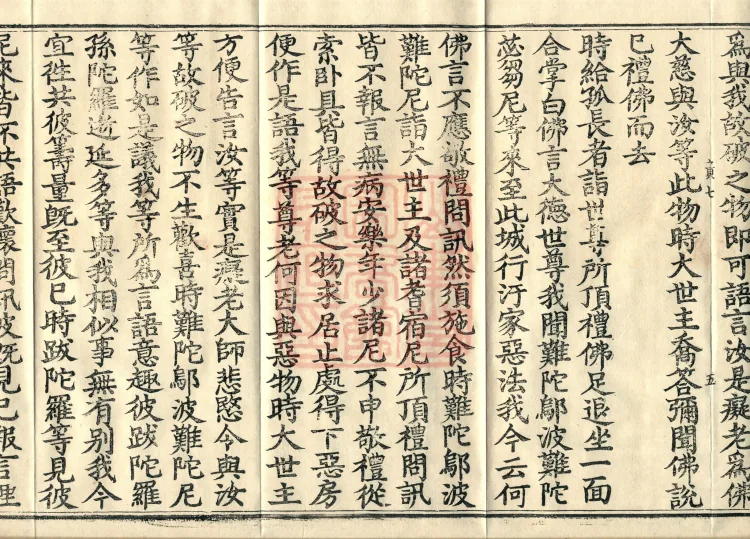 爲與我故破之物即可語言汝是癡老爲佛
大慈與汝等此物時大世主喬答彌聞佛説
巳禮佛而去
時給孤長者詣世尊所頂禮佛足退坐一面
合掌白佛言大德世尊我聞難陀鄔波難陀
苾芻尼等來至此城行汙家惡法我今云何
佛言不應敬禮問訊然須施食時難陀鄔波
難陀尼詣大世主及諸耆宿尼所頂禮問訊
皆不報言無病安樂年少諸尼不申敬禮從
索卧具皆得故破之物求居止處得下惡房
便作是語我等尊老何因與惡物時大世主
方便告言汝等實是癡老大師悲愍令與汝
等故破之物不生歡喜時難陀鄔波難陀尼
等作如是議我等所爲言語意趣彼跋陀羅
孫陀羅逝延多等與我相似事無有別我今
宜徃共彼籌量既至彼巳時跋陀羅等見彼
尼來皆不共語歡懷問訊彼既見巳報言理